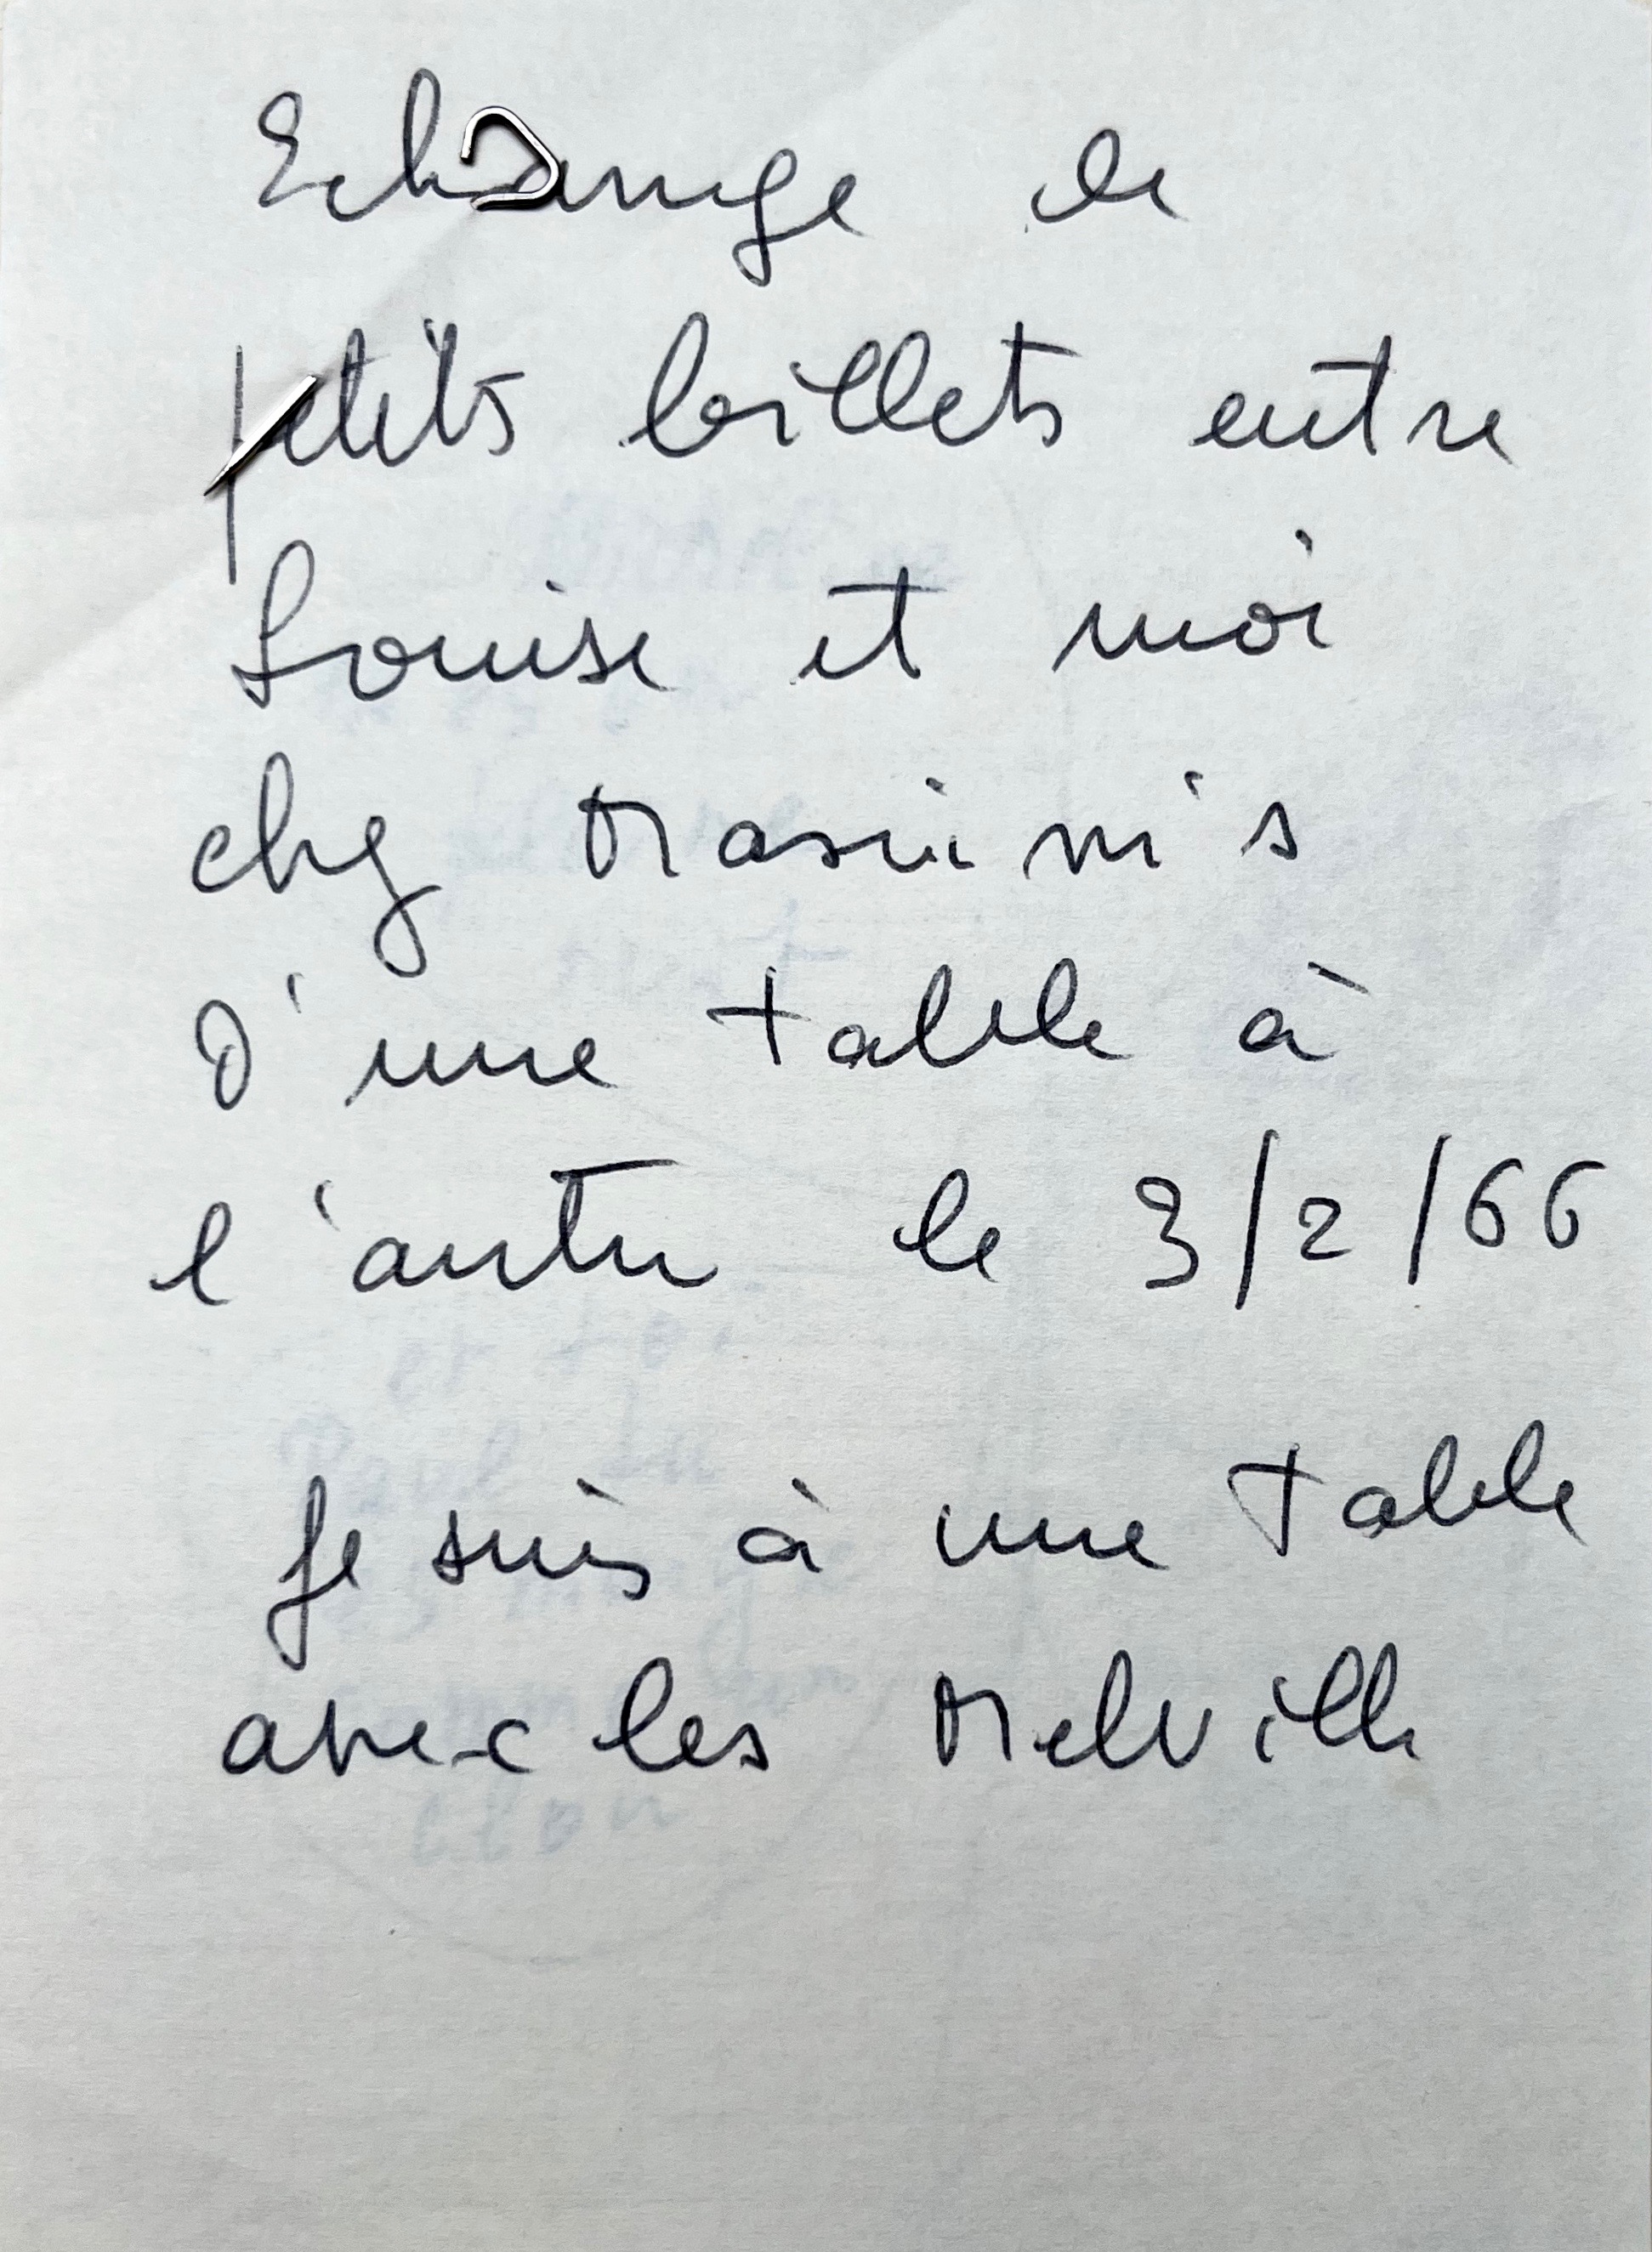 Echange de
petits billets entre
Louise et moi
chez Maxim's
d'une table à
l'autre le 3/2/66
Je suis à une table
avec les Melville